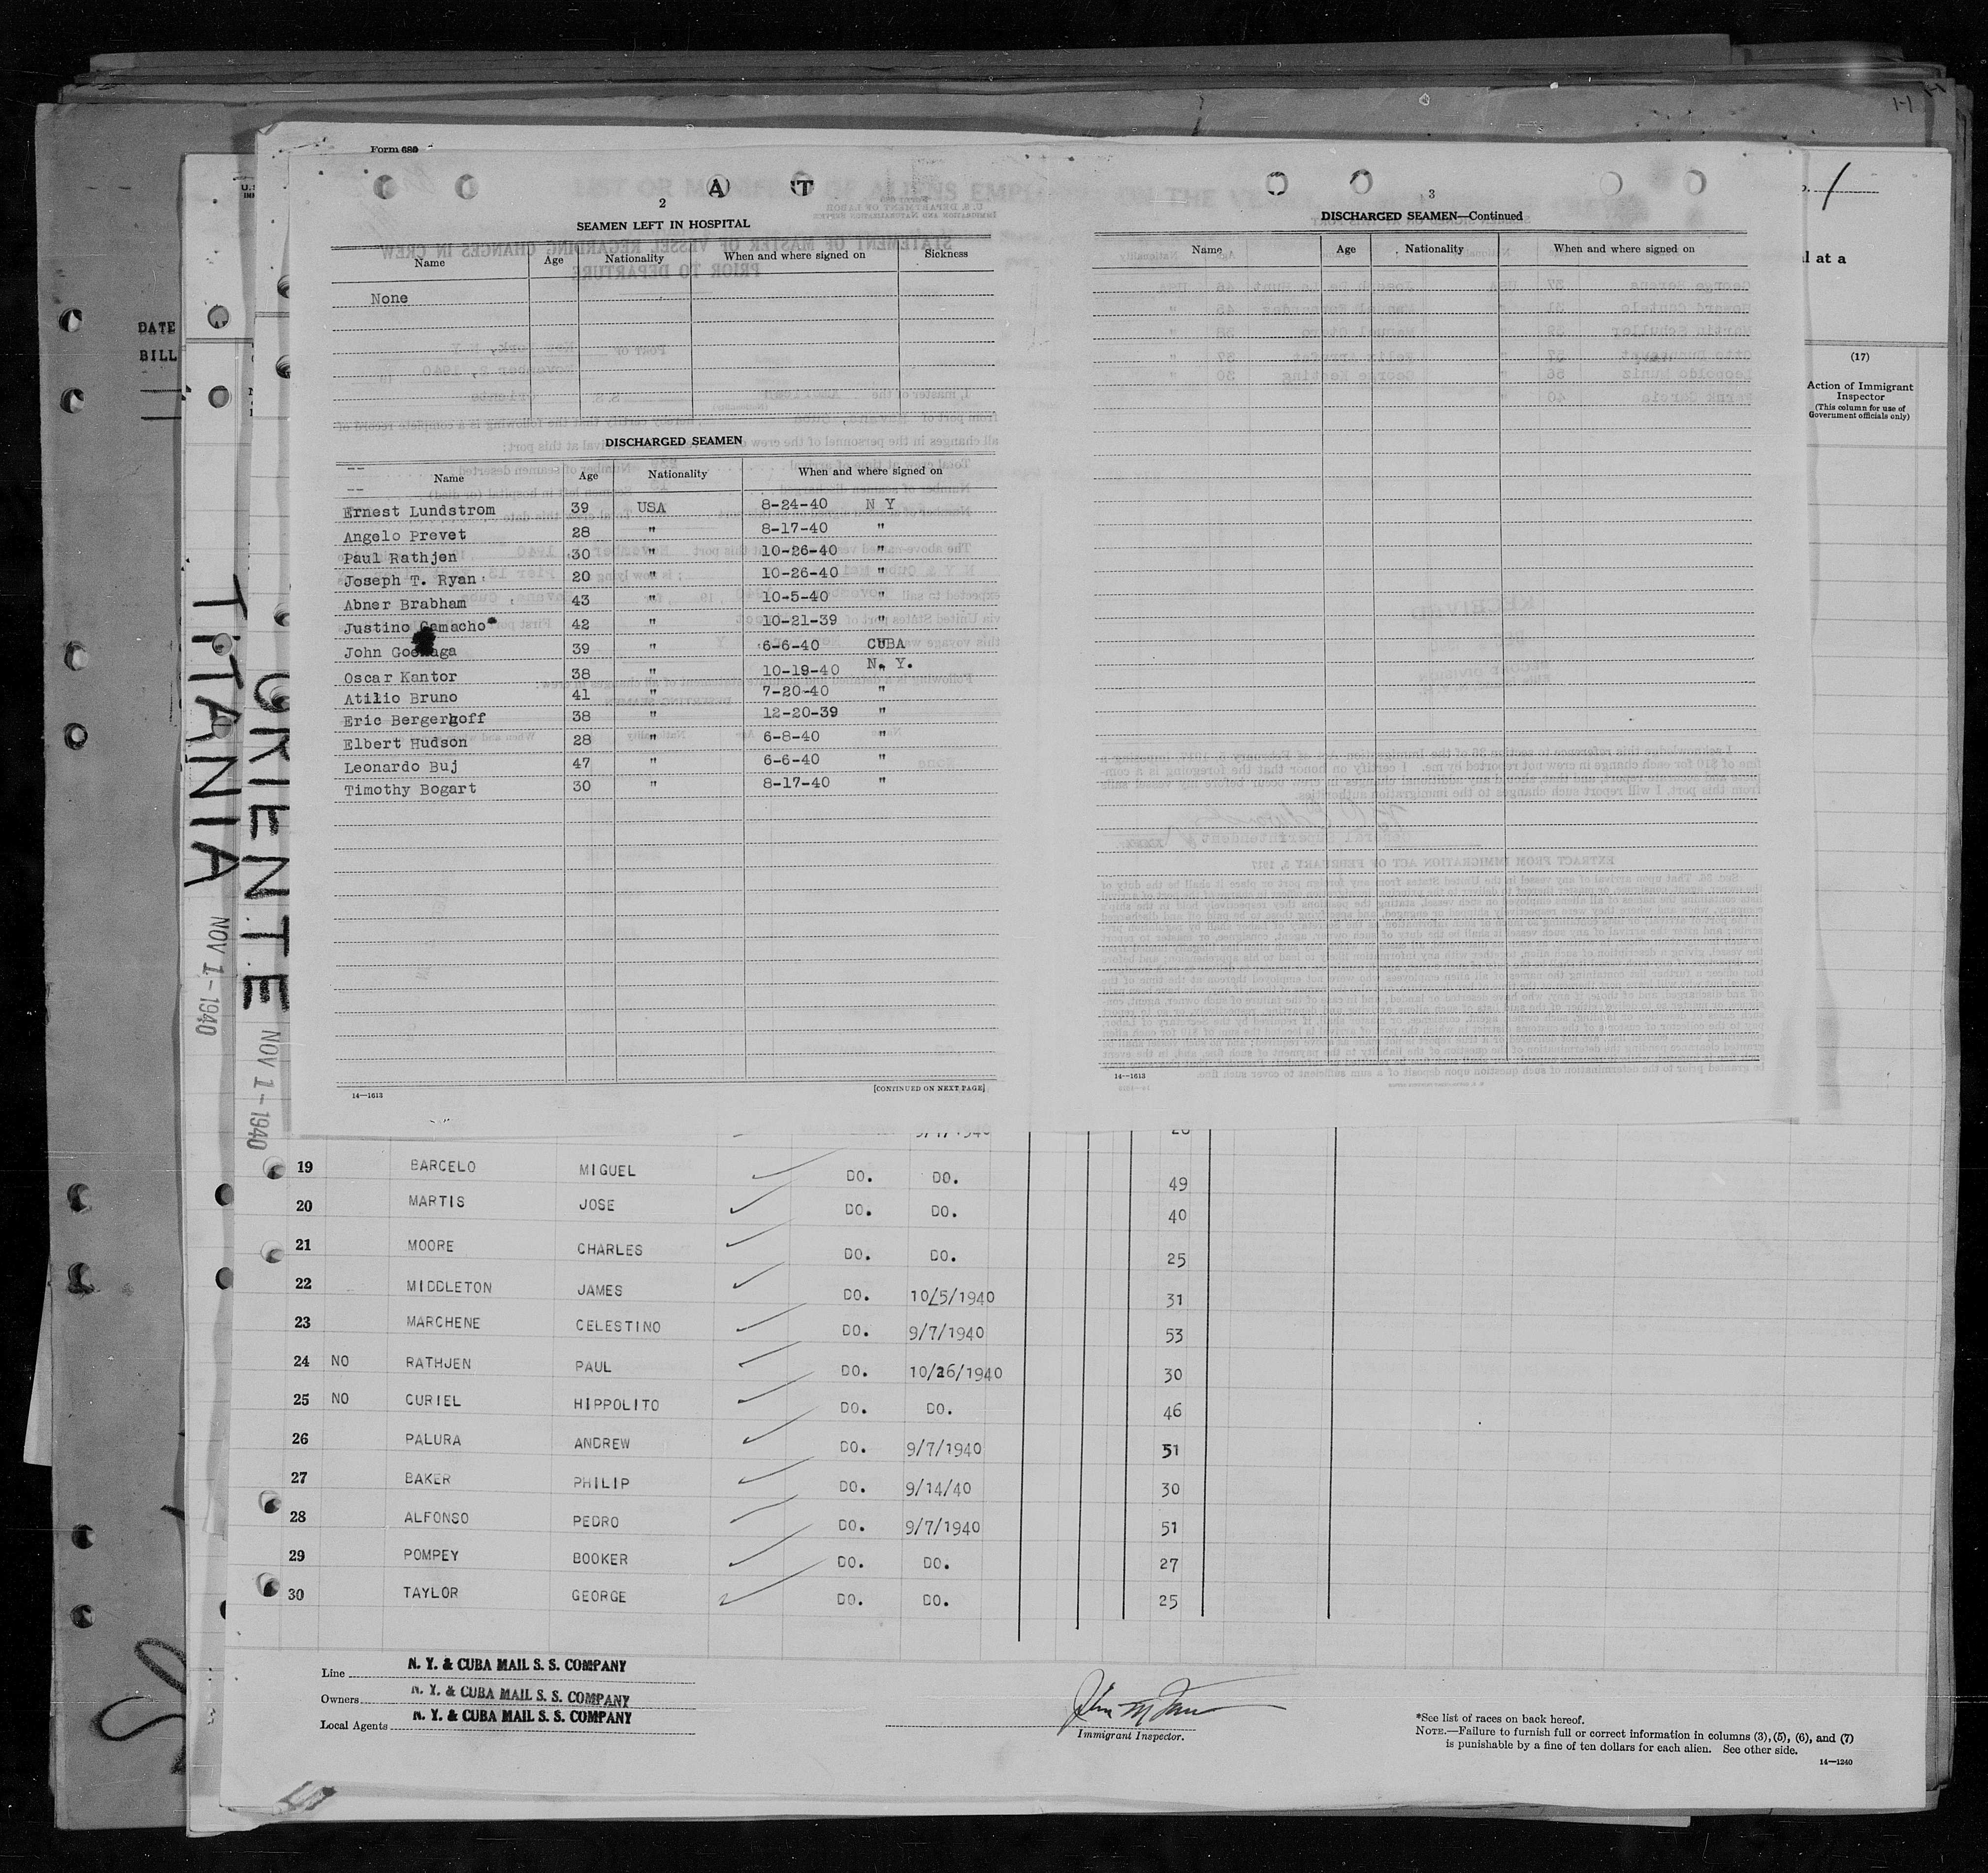 Form 680
2
SEAMEN LEFT IN HOSPITAL
Name Age Nationality When and where signed on Sickness
None
DISCHARGED SEAMEN
Name Age Nationality When and where signed on
Ernest Lundstrom 39 USA 8-24-40 N Y
Angelo Prevet 28 " 8-17-40 "
Paul Rathjen 30 " 10-26-40 "
Joseph T. Ryan 20 " 10-26-40 "
Abner Brabham 43 " 10-5-40 "
Justino Camacho 42 " 10-21-39 "
John 39 " 6-6-40 CUBA
Oscar Kantor 38 " 10-19-40 N. Y.
Atilio Bruno 41 " 7-20-40 "
Eric Bergerhoff 38 " 12-20-39 "
Elbert Hudson 28 " 6-8-40 "
Leonardo Buj 47 " 6-6-40 "
Timothy Bogart 30 " 8-17-40 "
[CONTINUED ON NEXT PAGE]
14—1613
3
DISCHARGED SEAMEN—Continued
Name Age Nationality When and where signed on
14—1613
1
l at a
(17)
Action of Immigrant
Inspector
(This column for use of
Government officials only)
DATE
BILL
TITANIA NOV 1-1940
ORIENTE NOV 1-1940
19 BARCELO MIGUEL DO. DO. 49
20 MARTIS JOSE DO. DO. 40
21 MOORE CHARLES DO. DO. 25
22 MIDDLETON JAMES DO. 10/5/1940 31
23 MARCHENE CELESTINO DO. 9/7/1940 53
24 NO RATHJEN PAUL DO. 10/26/1940 30
25 NO CURIEL HIPPOLITO DO. DO. 46
26 PALURA ANDREW DO. 9/7/1940 51
27 BAKER PHILIP DO. 9/14/40 30
28 ALFONSO PEDRO DO. 9/7/1940 51
29 POMPEY BOOKER DO. DO. 27
30 TAYLOR GEORGE DO. DO. 25
Line N. Y. & CUBA MAIL S. S. COMPANY
Owners N. Y. & CUBA MAIL S. S. COMPANY
Local Agents N. Y. & CUBA MAIL S. S. COMPANY
Immigrant Inspector.
*See list of races on back hereof.
NOTE.—Failure to furnish full or correct information in columns (3), (5), (6), and (7)
is punishable by a fine of ten dollars for each alien. See other side.
14—1240